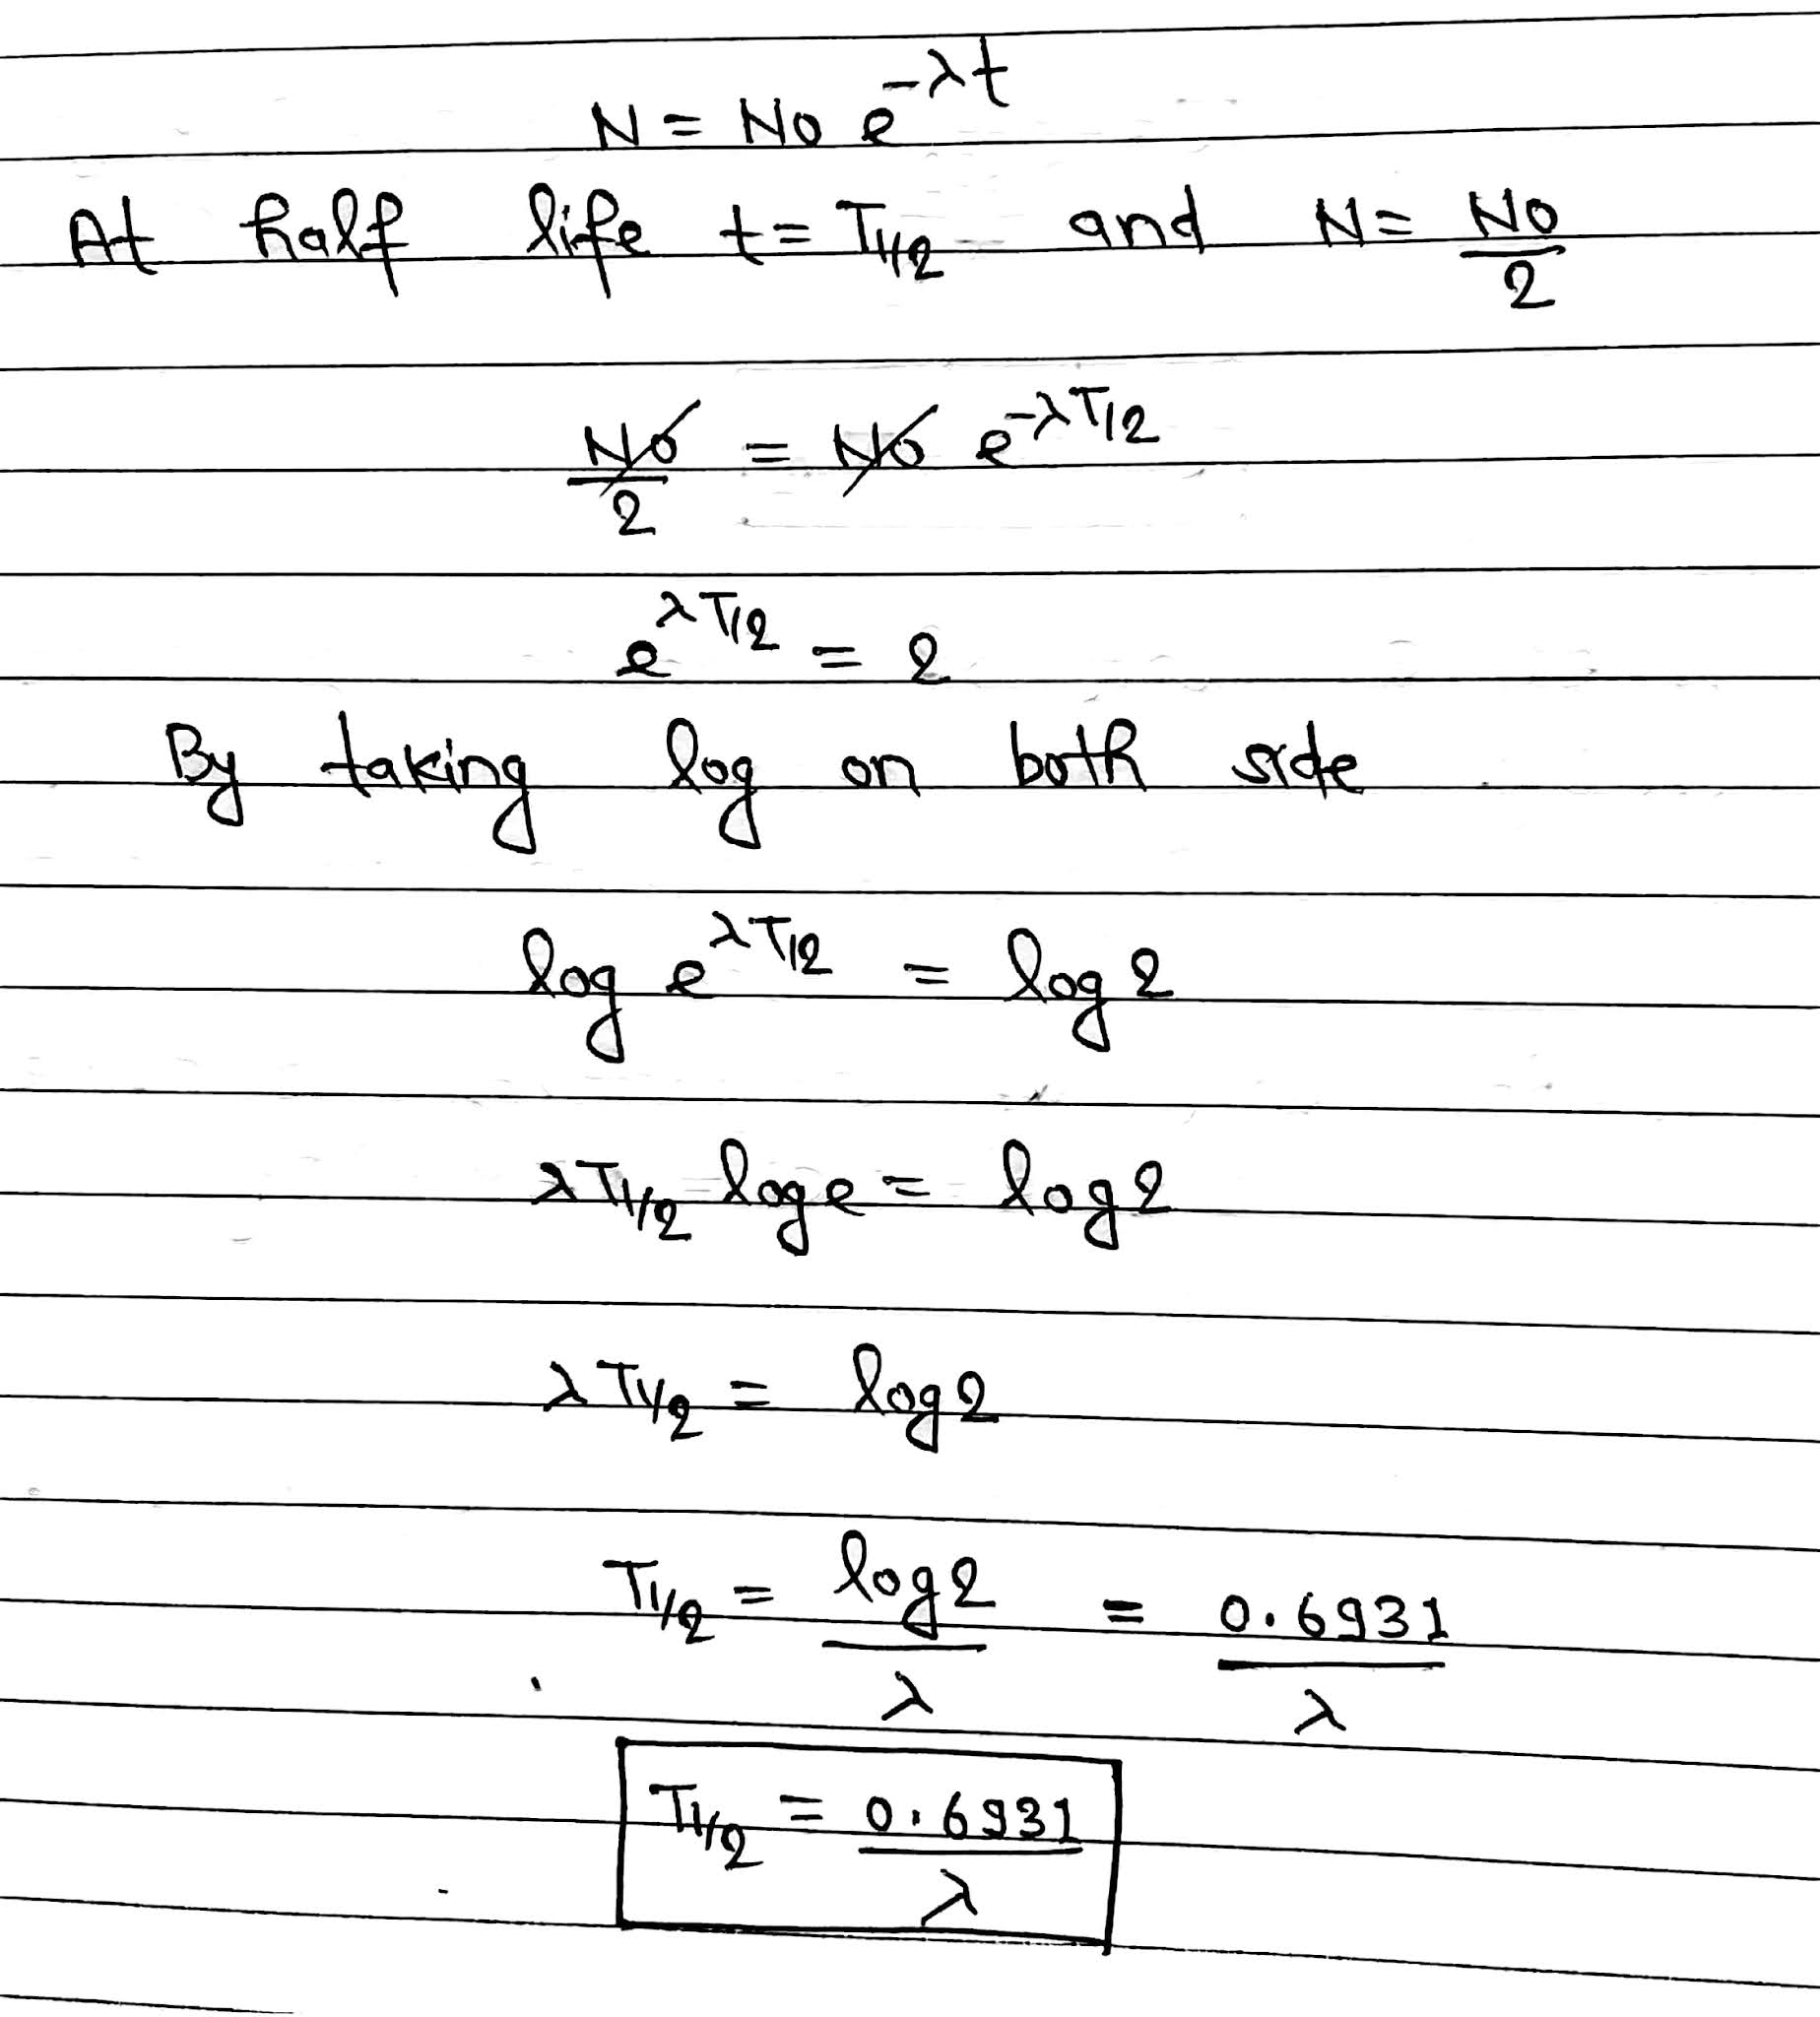 N = N₀ e^{-λt}
At half life t = T₁/₂ and N = N₀/2
N₀/2 = N₀ e^{-λT₁/₂}
e^{λT₁/₂} = 2
By taking log on both side
log e^{λT₁/₂} = log 2
λT₁/₂ log e = log 2
λT₁/₂ = log 2
T₁/₂ = log 2/λ = 0.6931/λ
T₁/₂ = 0.6931/λ